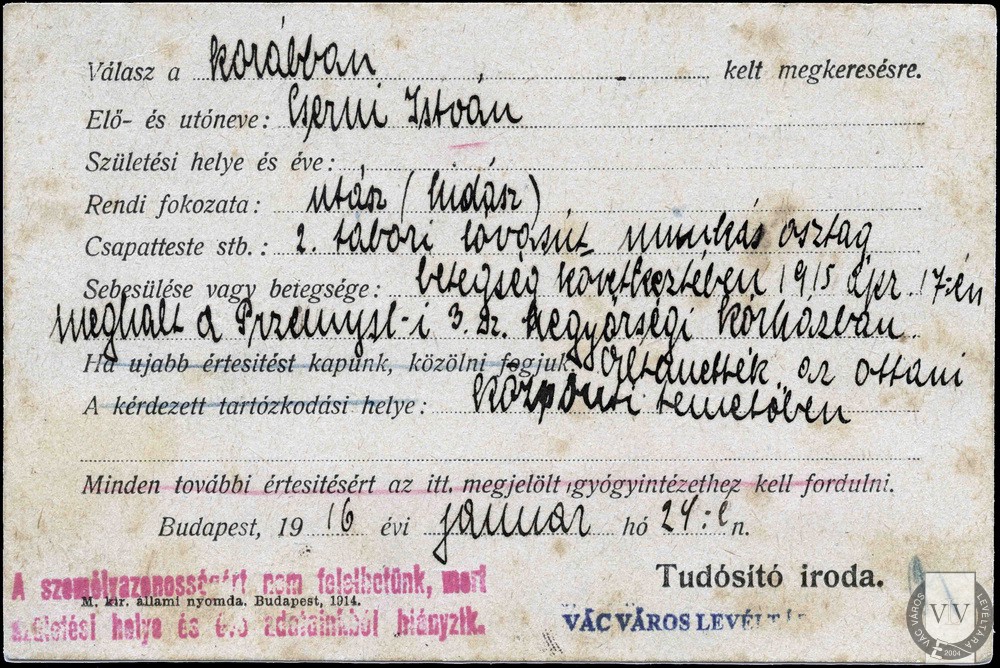 Válasz a korábban kelt megkeresésre.
Elő- és utóneve: Cserni István
Születési helye és éve:
Rendi fokozata: utász (hidász)
Csapatteste stb.: 2. tábori lóvasút munkás osztag
Sebesülése vagy betegsége: betegség következtében 1915 ápr. 17-én
meghalt a Przemysl-i 3. sz. helyőrségi kórházban
Ha ujabb értesitést kapunk, közölni fogjuk. Eltemették az ottani
A kérdezett tartózkodási helye: központi temetőben
Minden további értesitésért az itt megjelölt gyógyintézethez kell fordulni.
Budapest, 1916 évi január hó 24-én.
A személyazonosságért nem felelhetünk, mert
Tudósító iroda.
M. kir. állami nyomda. Budapest, 1914.
születési helye és éve adatainkból hiányzik.
VÁC VÁROS LEVÉLTÁR
VÁC VÁROS LEVÉLTÁRA
VV
2004